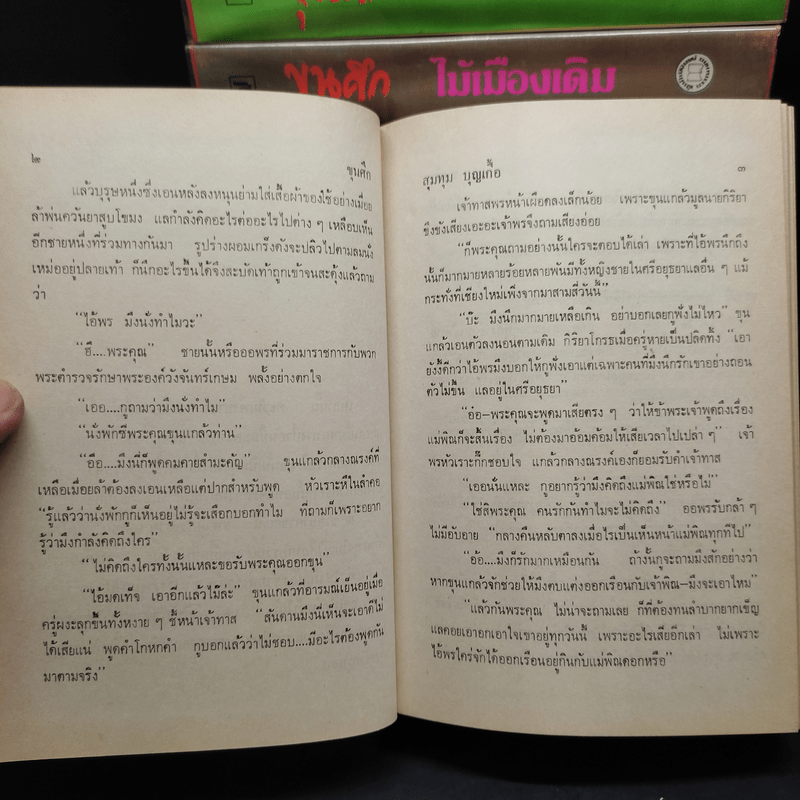 ขุนศึก ไม้เมืองเดิม
๒ ขุนศึก
แล้วบุรุษหนึ่งซึ่งเอนหลังลงหนุนย่ามใส่เสื้อผ้าของใช้อย่างเมื่อย
ล้าพ่นควันยาสูบโขมง แลกำลังคิดอะไรต่ออะไรไปต่าง ๆ เหลือบเห็น
อีกชายหนึ่งที่ร่วมทางกันมา รูปร่างผอมเกร็งดังจะปลิวไปตามลมนั่ง
เหม่ออยู่ปลายเท้า ก็นึกอะไรขึ้นได้จึงสะบัดเท้าถูกเข้าจนสะดุ้งแล้วถาม
ว่า
“ไอ้พร มึงนั่งทำไมวะ”
“ฮึ....พระคุณ” ชายนั้นหรือออพรที่ร่วมมาราชการกับพวก
พระตำรวจรักษาพระองค์วังจันทร์เกษม พลั้งอย่างตกใจ
“เออ....กูถามว่ามึงนั่งทำไม”
“นั่งพักซีพระคุณขุนแกล้วท่าน”
“อือ....มึงนี่ก็พูดคมคายสำมะคัญ” ขุนแกล้วกลางณรงค์ที่
เหลือเมื่อยล้าต้องลงเอนเหลือแต่ปากสำหรับพูด หัวเราะหึในลำคอ
“รู้แล้วว่านั่งพักกูก็เห็นอยู่ไม่รู้จะเสือกบอกทำไม ที่ถามก็เพราะอยาก
รู้ว่ามึงกำลังคิดถึงใคร”
“ไม่คิดถึงใครทั้งนั้นแหละขอรับพระคุณออกขุน”
“ไอ้มดเท็จ เอาอีกแล้วไม๊ล่ะ” ขุนแกล้วที่อารมณ์เย็นอยู่เมื่อ
ครู่ผงะลุกขึ้นทั้งหงาย ๆ ชี้หน้าเจ้าทาส “สันดานมึงนี่เห็นจะเอาดีไม่
ได้เสียแน่ พูดคำโกหกคำ กูบอกแล้วว่าไม่ชอบ....มีอะไรต้องพูดกัน
มาตามจริง”
สุมทุม บุญเกื้อ ๓
เจ้าทาสพรหน้าเผือดลงเล็กน้อย เพราะขุนแกล้วมูลนายกิริยา
ขึงขังเสียงเอะอะเจ้าพรจึงถามเสียงอ่อย
“ก็พระคุณถามอย่างนั้นใครจะตอบได้เล่า เพราะที่ไอ้พรนึกถึง
นั้นก็มากมายหลายร้อยหลายพันมีทั้งหญิงชายในศรีอยุธยาแลอื่น ๆ แม้
กระทั่งที่เชียงใหม่เพิ่งจากมาสามสี่วันนี้”
“บ๊ะ มึงนึกมากมายเหลือเกิน อย่าบอกเลยกูฟังไม่ไหว” ขุน
แกล้วเอนตัวลงนอนตามเดิม กิริยาโกรธเมื่อครู่หายเป็นปลิดทิ้ง “เอา
ยังงี้ดีกว่าไอ้พรมึงบอกให้กูฟังเอาแต่เฉพาะคนที่มึงนึกรักเขาอย่างถอน
ตัวไม่ขึ้น แลอยู่ในศรีอยุธยา”
“อ๋อ–พระคุณจะพูดมาเสียตรง ๆ ว่าให้ข้าพระเจ้าพูดถึงเรื่อง
แม่พิณก็จะสิ้นเรื่อง ไม่ต้องมาอ้อมค้อมให้เสียเวลาไปเปล่า ๆ” เจ้า
พรหัวเราะกิ๊กชอบใจ แกล้วกลางณรงค์เองก็ยอมรับคำเจ้าทาส
“เออนั่นแหละ กูอยากรู้ว่ามึงคิดถึงแม่พิณใช่หรือไม่”
“ใช่สิพระคุณ คนรักกันทำไมจะไม่คิดถึง” ออพรรับกล้า ๆ
ไม่มีอับอาย “กลางคืนหลับตาลงเมื่อไรเป็นเห็นหน้าแม่พิณทุกทีไป”
“อ้อ....มึงก็รักมากเหมือนกัน ถ้างั้นกูจะถามมึงสักอย่างว่า
หากขุนแกล้วจักช่วยให้มึงตบแต่งออกเรือนกับเจ้าพิณ–มึงจะเอาไหม”
“แล้วกันพระคุณ ไม่น่าจะถามเลย ก็ที่ต้องทนลำบากยากเข็ญ
แลคอยเอาอกเอาใจเขาอยู่ทุกวันนี้ เพราะอะไรเสียอีกเล่า ไม่เพราะ
ไอ้พรใคร่จักได้ออกเรือนอยู่กินกับแม่พิณดอกหรือ”